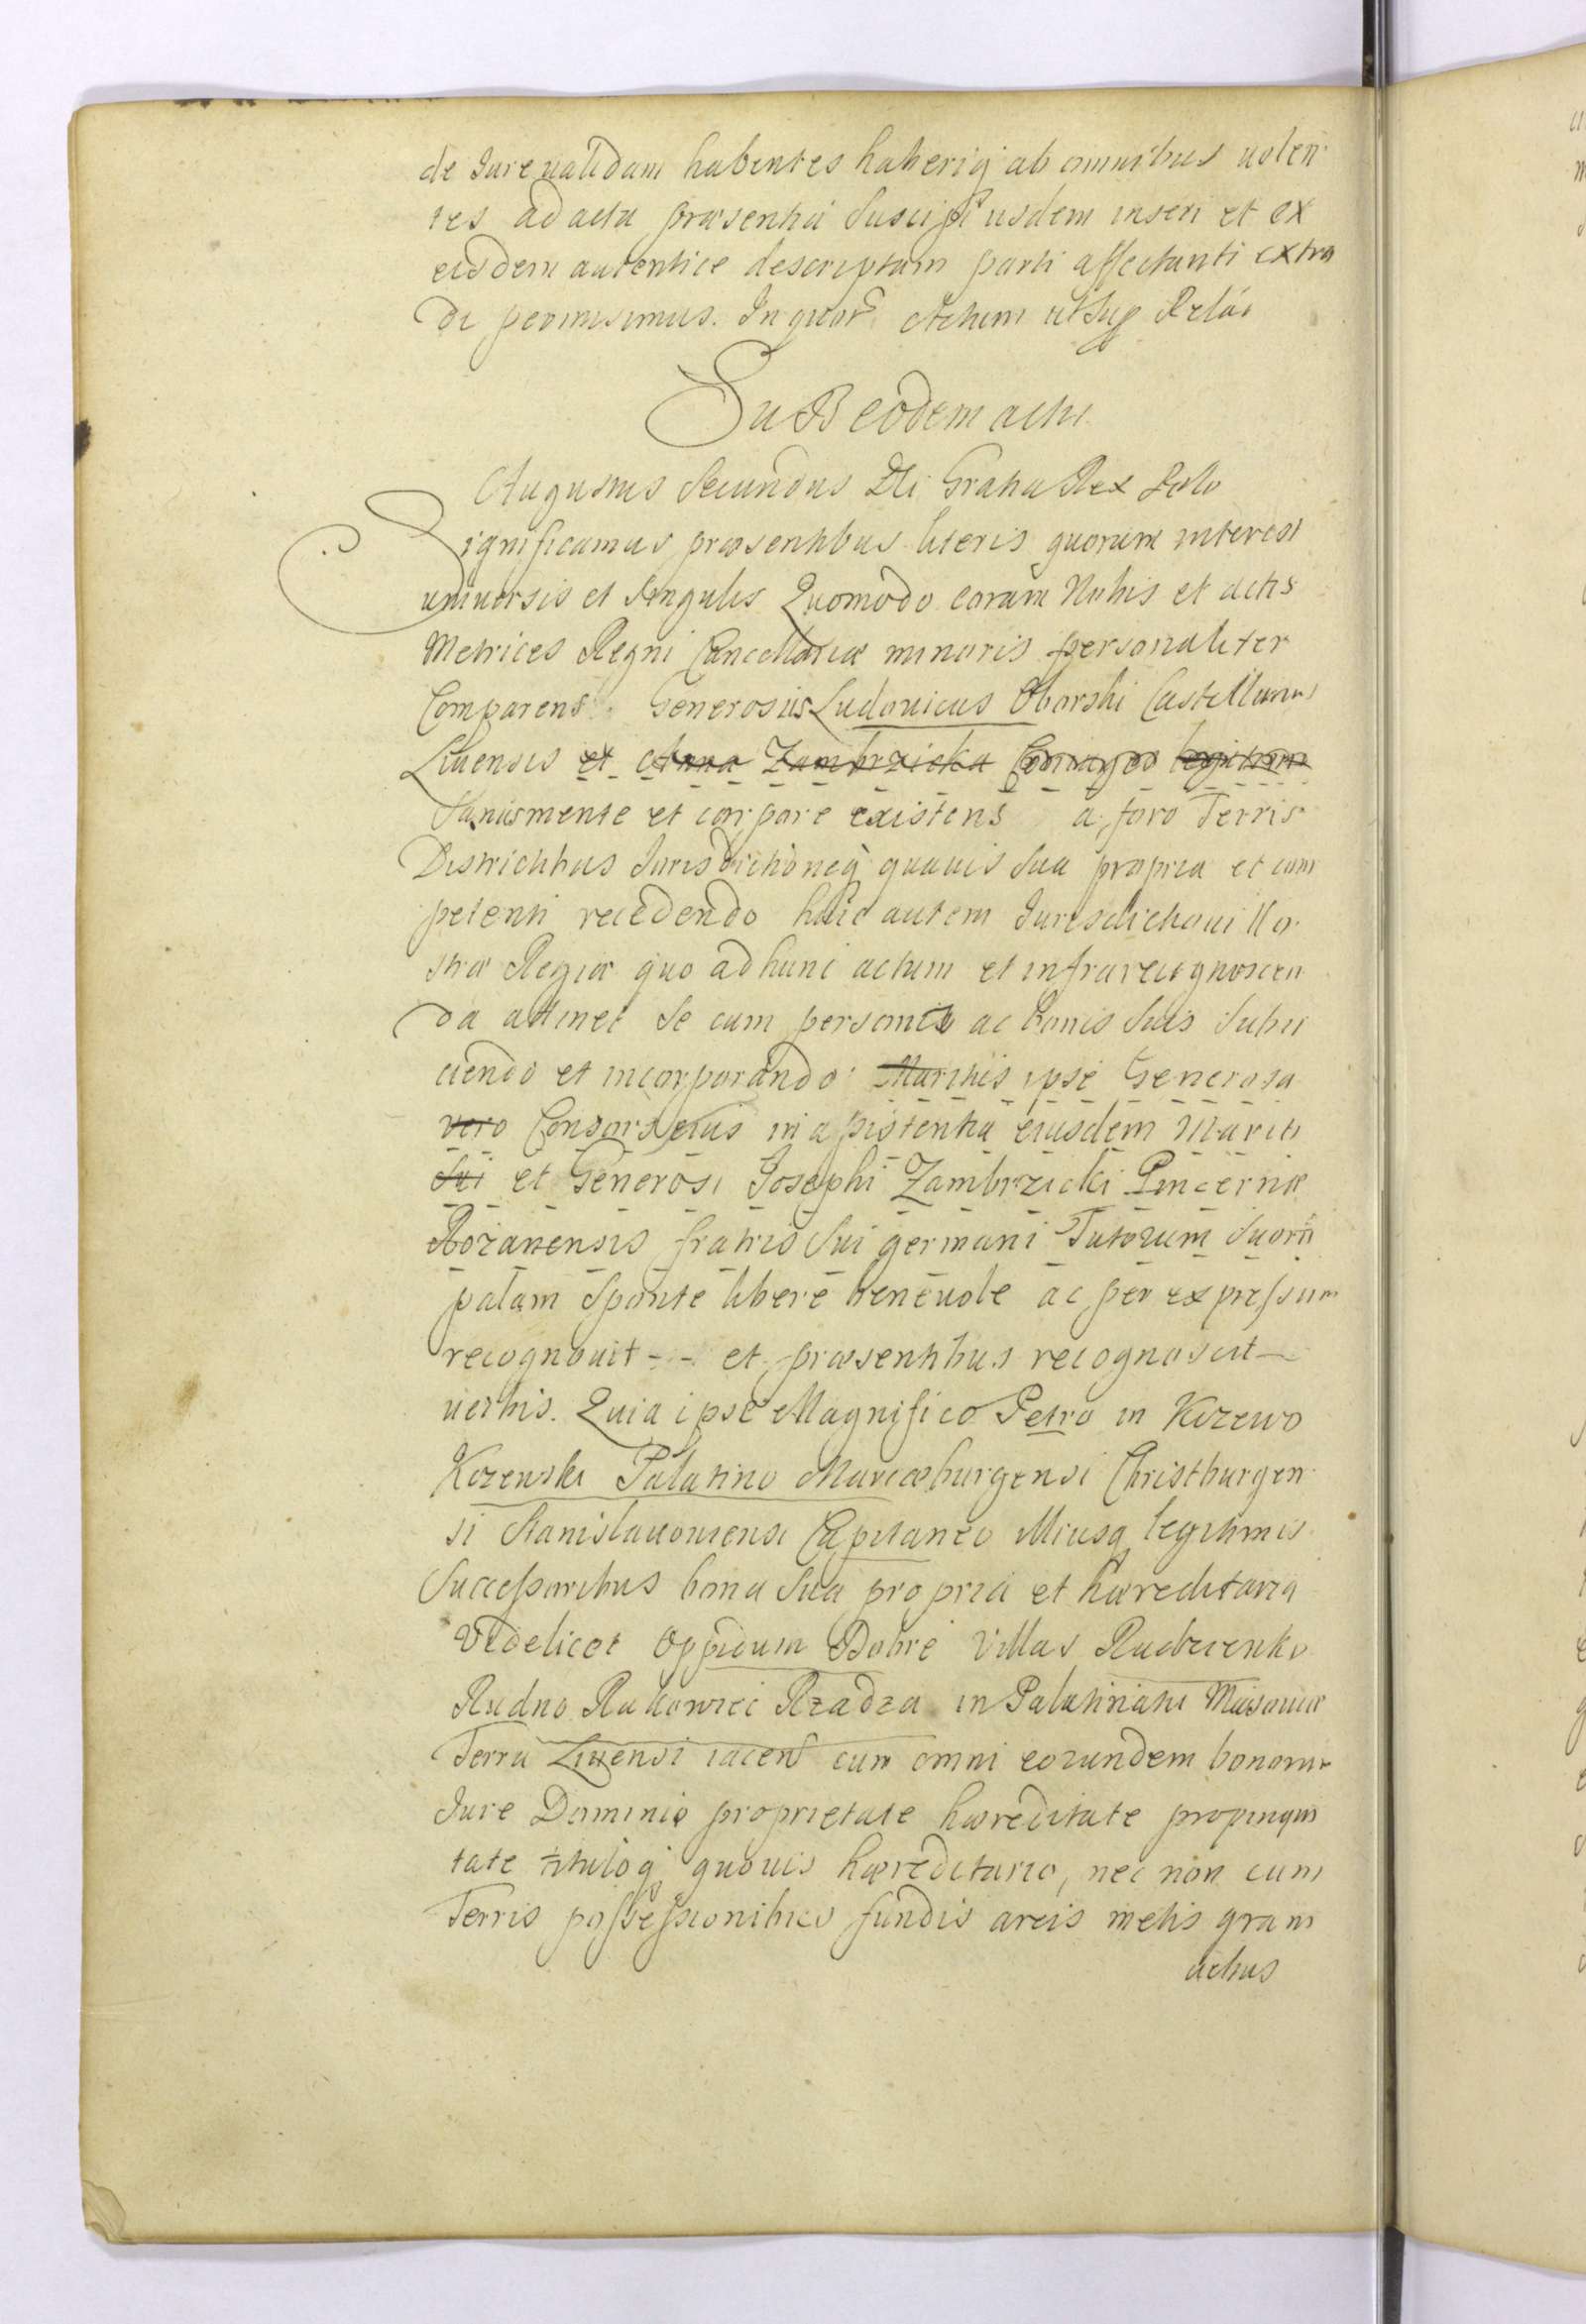 de Jure validam habentes haberiq ab omnibus volen
tes ad acta præsentia Suscipi usdem inseri et ex
eisdem autentice descriptam parti affectanti extra
di permisimus. In quor Actum ut Sup Relao
SuB eodem actu
Augustus Secundus Dei Gratia Rex Polo
Significamus præsentibus literis quorum interest
universis et Singulis Quomodo coram Nobis et actis
Metrices Regni Cancellariæ minoris personaliter
Comparens Generosus Ludovicus Oborski Castellanus
Livensis et Anna Zambrzicka Coniuges legitimi
Sanusmente et corpore existens a foro Terris
Districtibus Jurisdictioneq quavis Sua propria et com
petenti recedendo huic autem Jurisdictioni No
stræ Regiæ quo ad hunc actum et infrarecognoscen
da attinet Se cum personis ac bonis Suis Subii
ciendo et incorporando Maritus ipse Generosa
vero Consors eius in apistentia eiusdem Mariti
Sui et Generosi Josephi Zambrzicki Pincernæ
Rozanensis fratris Sui germani Tutorum Suorũ
palam Sponte libere benevole ac per expressum
recognovit - - et præsentibus recognoscit
verbis. Quia ipse Magnifico Petro in Kczewo
Kczewski Palatino Mariæburgensi Christburgen
si Stanislavoniensi Capitaneo Illiusq legitimis
Successoribus bona Sua propria et hæreditaria
Videlicet Oppidum Dobre Villas Rudzienko
Rudno Rakowiec Rządza in Palatinatu Masoviæ
Terra Livensi iacen cum omni eorundem bonorum
Jure Dominio proprietate hæreditate propinqui
tate titulog quovis hæreditario, nec non cum
Terris possessionibus fundis areis metis gram
acbus